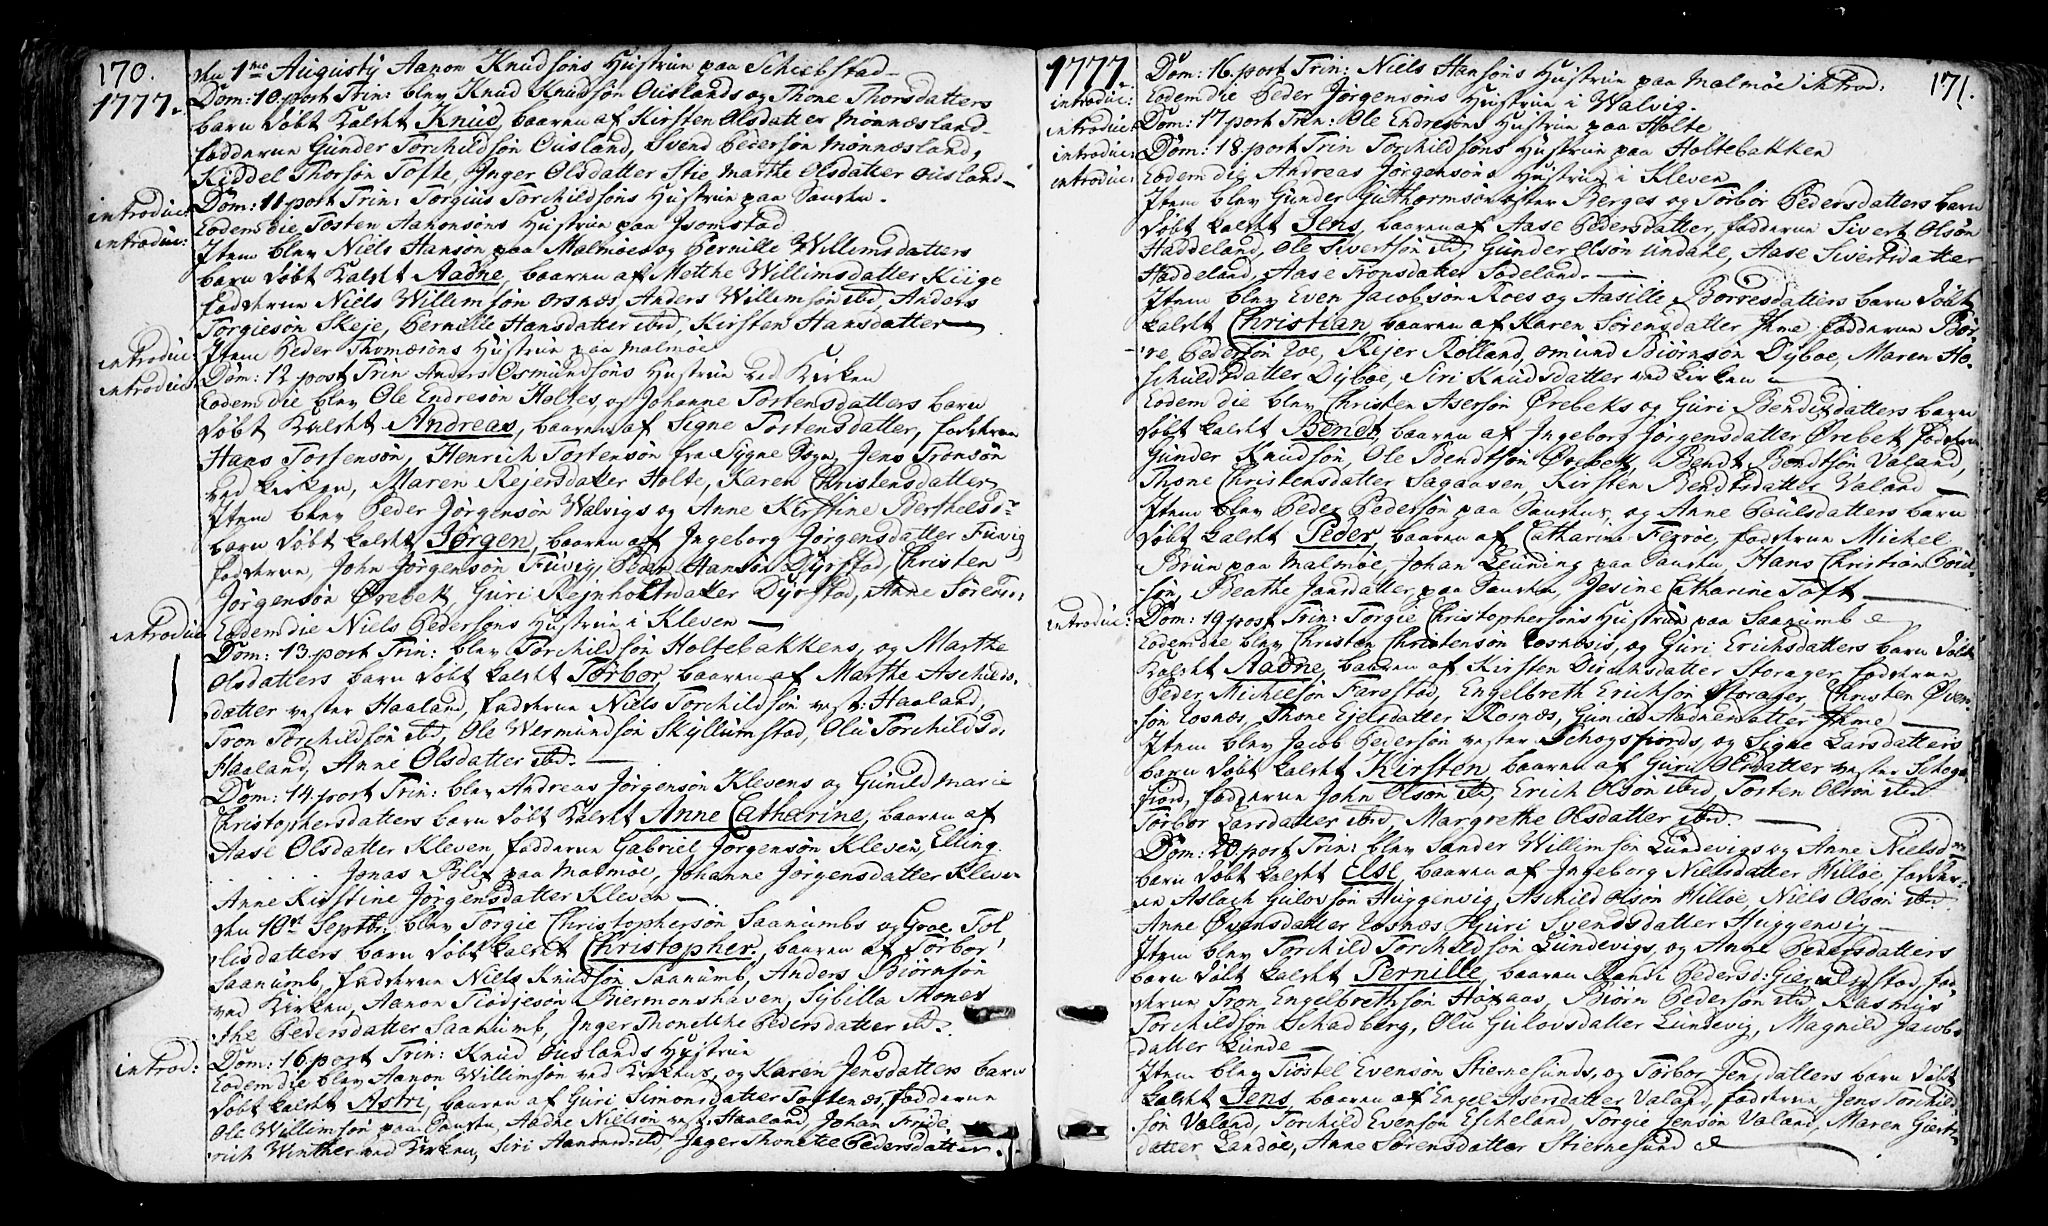 170.
1777.
den 1mo Augusty Aanon Knudsøns Hustrue paa Schiebstad
Dom: 10. post Trin: blev Knud Knudsøn Ouslands og Thone Thorsdatters
barn døbt kaldet Knud, baaren af Kirsten Olsdatter Mønnesland
fadderne Gunder Torchildsøn Ousland, Svend Pedersøn Mønnesland,
Kiddel Thorsøn Tofte, Inger Olsdatter Stie Marthe Olsdatter Ousland
introduc: Dom: 11 post Trin: Torgius Torchildsøns Hustrue paa
introduc: Eodem die Tosten Aanonsøns Hustrue paa
Item blev Niels Hansøn paa Malmøe og Pernille Willemsdatters
barn døbt kaldet Aadne, baaren af Metthe Willimsdatter Kiige
fadderne Niels Willemsøn Osnæs, Anders Willemsøn ibid, Anders
Torgiesøn Skeje, Pernille Hansdatter ibid, Kirsten Hansdatter
introduc: Item Peder Thomæsøns Hustrue paa Malmøe
introduc: Dom: 12 post Trin Anders Osmundsøns Hustrue ved Kirken
Eodem die blev Ole Endresøn Holtes, og Johanne Tostensdatters barn
døbt kaldet Andreas, baaren af Signe Tostensdatter, fadderne
Hans Tostensøn, Henrich Tostensøn fra Sygne Sogn, Jens Tronsøn
ved Kirken, Maren Rejersdatter Holte, Karen Christensdatter
Item blev Peder Jørgensøn Walvigs og Anne Kirstine Berthelsd:
barn døbt kaldet Jørgen, baaren af Ingeborg Jørgensdatter Fuvig
fadderne, John Jørgensøn Fuvig, Peder Hansøn Dyrstad, Christen
Jørgensøn Ørebek, Guri Rejnholtsdatter Dyrstad, Anne Sørens:
introduc: Eodem die Niels Pedersøns Hustrue i Kleven
Dom: 13. post Trin: blev Torchildsøn Holtebakkens, og Marthe
Olsdatters barn døbt kaldet Torbor, baaren af Marthe Aschilds:
datter vester Haaland, fadderne Niels Torchildsøn vest: Haaland,
Tron Torchildsøn ibid, Ole Wermundsøn Skyllumstad, Olu Torchildsd:
Haaland, Anne Olsdatter ibd:
Dom: 14. post Trin: blev Andreas Jørgensøn Klevens og Gunild Marie
Christophersdatters barn døbt kaldet Anne Catharine, baaren af
Aase Olsdatter Kleven, fadderne Gabriel Jørgensøn Kleven, Elling
Jonas Blix paa Malmøe, Johanne Jørgensdatter Kleven
Anne Kirstine Jørgensdatter Kleven
den 10de Septbr: blev Torgie Christophersøn Saanumbs og Groe Tol
lisdatters barn døbt kaldet Christopher, baaren af Torbor
Saanumb, fadderne Niels Knudsøn Saanumb, Anders Biørnsøn
ved Kirken, Aanon Tiødjesøn Biermonshaven, Sybilla Thonet
the Pedersdatter Saanumb, Inger Thonethe Pedersdatter ibd.
introd: Dom: 16 post Trin: Knud Ouslands Hustrue
Eodem die blev Aanon Willimsøn ved Kirken, og Karen Jensdatters barn
døbt kaldet Astri, baaren af Guri Simonsdatter Tostenæs, fadderne
Ole Willimsøn paa, Aadne Nielsøn vest: Haaland, Johan Fride
rich Winther ved Kirken, Siri Aanensd: ibd, Inger Thonette Pedersdatter
1777.
171.
introduc: Dom: 16. post Trin: Niels Hansøns Hustrue paa Malmøe introd:
introduc: Eodem die Peder Jørgensøns Hustrue i Walvig.
introduc: Dom: 17 post Trin: Ole Endresøns Hustrue paa Holte
introduc: Dom: 18. post Trin Torchildsøns Hustrue paa Holtebakken
Eodem die Andreas Jørgensøns Hustrue i Kleven
Item blev Gunder Guthormsøn øster Berges og Torbor Pedersdatters barn
døbt kaldet Jens, baaren af Aase Pedersdatter, fadderne Sivert Olsøn
Haddeland, Ole Sivertsøn ibd, Gunder Olsøn Undale, Aase Sivertsdatter
Haddeland, Aase Tronsdatter Sodeland.
Item blev Even Jacobsøn Roes og Aasille Borresdatters barn døbt
kaldet Christian, baaren af Karen Sørensdatter Ihme, fadderne Bør-
re Pedersøn Eoe, Rejer Rolland, Omund Biørnsøn Dyboe, Maren Ho-
schuldsdatter Dyboe, Siri Knudsdatter ved Kirken
Eodem die blev Christen Asersøn Ørebeks og Guri Bendtsdatters barn
døbt kaldet Bendt, baaren af Ingeborg Jørgensdatter Ørebek, fadderne
Gunder Knudsøn, Ole Bendtsøn Ørebek, Bendt Bendtsøn Valand,
Thone Christensdatter Sagaasen, Kirsten Bendtsdatter Valand
Item blev Peder Pedersøn paa, og Anne Poulsdatters barn
døbt kaldet Peder, baaren af Catharine Ferøe, fadderne Michel
Brun paa Malmøe, Johan Leuning paa, Hans Christian Poul-
søn, Beathe Jansdatter paa, Jesine Catharine Toft
introduc: Dom: 19 post Trin: Torgie Christophersøns Hustrue paa Saanumb
Eodem die blev Christen Christensøn Rosnæsis, og Guri Erichsdatters barn døbt
kaldet Aadne, baaren af Kirsten Dirichsdatter Storager, fadderne
Peder Michelsøn Farestad, Engelbreth Erichsøn Storager, Christen Øven-
søn Rosnæs, Thone Ejelsdatter Rosnæs, Gunild Aadnedatter Ihme
Item blev Jacob Pedersøn vester Schogsfiords, og Signe Larsdatters
barn døbt kaldet Kirsten, baaren af Guru Olsdatter vester Schogs-
fiord, fadderne John Olsøn ibd, Erich Olsøn ibid, Tosten Olsøn ibd
Torbor Larsdatter ibid, Margrethe Olsdatter ibid.
Dom: 20. post Trin: blev Sander Willimsøn Lundevigs og Anne Nielsd:
barn døbt kaldet Else, baaren af Ingeborg Nielsdatter Hilløe, fadder-
ne Aslach Gulovsøn Huggenvig, Aschild Olsøn Hilløe, Niels Olsøn ibd.
Anne Øvensdatter Rosnæs Guri Svendsdatter Huggenvig
Item blev Torchild Torchildsøn Lundevigs, og Anne Pedersdatters
barn døbt kaldet Pernille, baaren Randi Pedersd:, fad-
derne Tron Engelbrethsøn, Biørn Pedersøn ibd, Rasmus
Torchildsøn Schadberg, Olu Gulovsdatter Lundevig, Magnild Jacobs
datter Lunde
Item blev Tiøstel Evensøn Stiernesunds, og Torbor Jensdatters barn døbt
kaldet Jens, baaren af Engel Asersdatter Valand, fadderne Jens Torchild-
søn Valand, Torchild Evensøn Escheland, Torgie Jensøn Valand, Maren Giert-
datter Landøe, Anne Sørensdatter Stiernesund